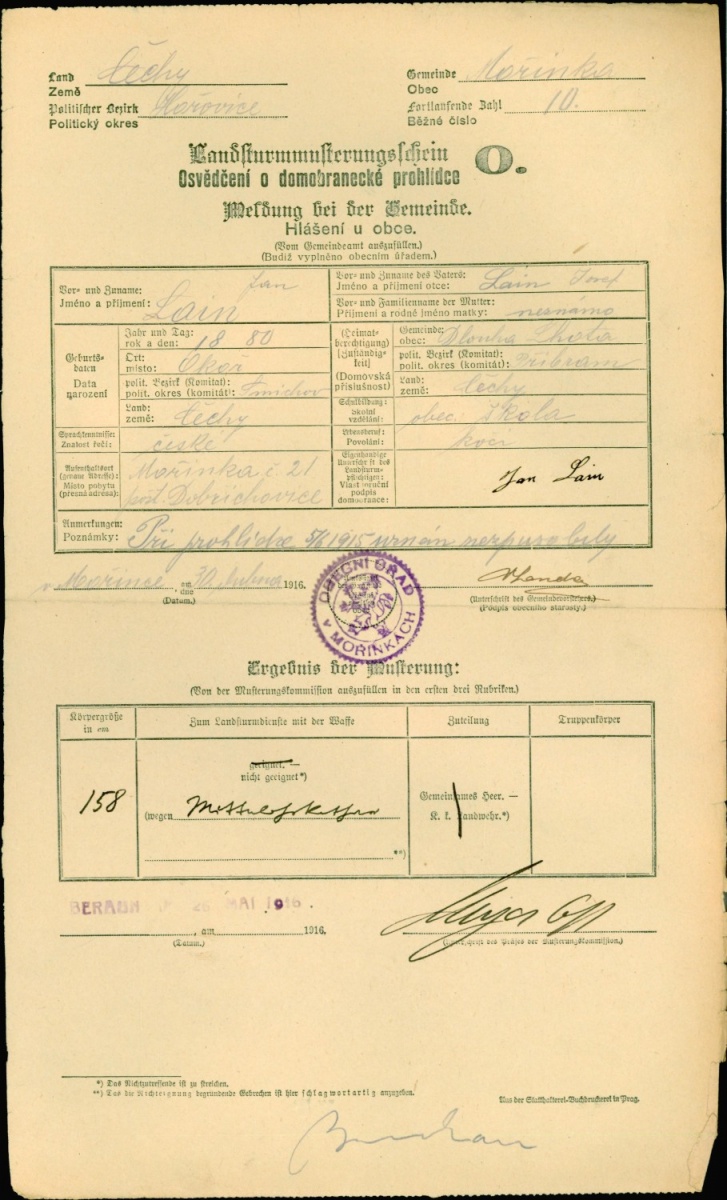 Land Čechy
Země
Gemeinde Mořinka
Obec
Politischer Bezirk Hořovice
Politický okres
Fortlaufende Zahl 10.
Běžné číslo
Landsturmmusterungsschein O.
Osvědčení o domobranecké prohlídce
Meldung bei der Gemeinde.
Hlášení u obce.
(Vom Gemeindeamt auszufüllen.)
(Budiž vyplněno obecním úřadem.)
Vor- und Zuname: Jan
Jméno a příjmení: Lain
Vor- und Zuname des Vaters: Lain Josef
Jméno a příjmení otce:
Vor- und Familienname der Mutter:
Příjmení a rodné jméno matky: neznámo
Geburtsdaten
Data narození
Jahr und Tag:
rok a den: 1880
Ort:
místo: Okoř
polit. Bezirk (Komitat):
polit. okres (komitát): Smíchov
Land:
země: Čechy
(Heimatberechtigung)
[Zuständigkeit]
(Domovská příslušnost)
Gemeinde:
obec: Dlouhá Lhota
polit. Bezirk (Komitat):
polit. okres (komitát): Příbram
Land:
země: Čechy
Sprachkenntnisse:
Znalost řečí: české
Schulbildung:
Školní vzdělání: obec. škola
Lebensberuf:
Povolání: kočí
Aufenthaltsort (genaue Adresse):
Místo pobytu (přesná adresa):
Mořinka č 21
post. Dobřichovice
Eigenhändige Unterschrift des Landsturmpflichtigen:
Vlastnoruční podpis domobrance:
Jan Lain
Anmerkungen:
Poznámky: Při prohlídce 5/6 1915 uznán nezpůsobilý
v Mořince, am dne 30 dubna 1916.
(Datum.)
(Unterschrift des Gemeindevorstehers.)
(Podpis obecního starosty.)
OBECNÍ ÚŘAD
V MOŘINKÁCH
Ergebnis der Musterung:
(Von der Musterungskommission auszufüllen in den ersten drei Rubriken.)
Körpergröße in cm
Zum Landsturmdienste mit der Waffe
Zuteilung
Truppenkörper
158
geeignet. —
nicht geeignet*)
(wegen
**)
Gemeinsames Heer. —
K. k. Landwehr.*)
BERAUN MAI 1916
, am 1916.
(Datum.)
(Unterschrift des Präses der Musterungskommission.)
*) Das Nichtzutreffende ist zu streichen.
**) Das die Nichteignung begründende Gebrechen ist hier schlagwortartig anzugeben.
Aus der Statthalterei-Buchdruckerei in Prag.